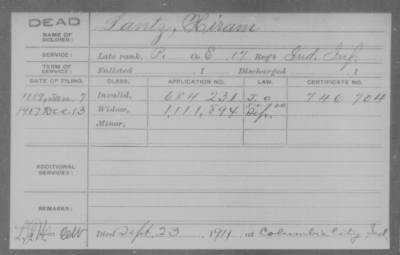 DEAD
NAME OF SOLDIER: Lantz, Hiram
SERVICE: Late rank, P. Co. E, 17 Reg't Ind. Inf.
TERM OF SERVICE: Enlisted 1 Discharged 1
DATE OF FILING. CLASS. APPLICATION NO. LAW. CERTIFICATE NO.
1889, Jan. 7 Invalid, 684 231 746 704
1917 Dec. 13 Widow, 1,111,894
Minor,
ADDITIONAL SERVICES:
REMARKS:
Died Sept. 23, 1911, at Columbia City, Ind.